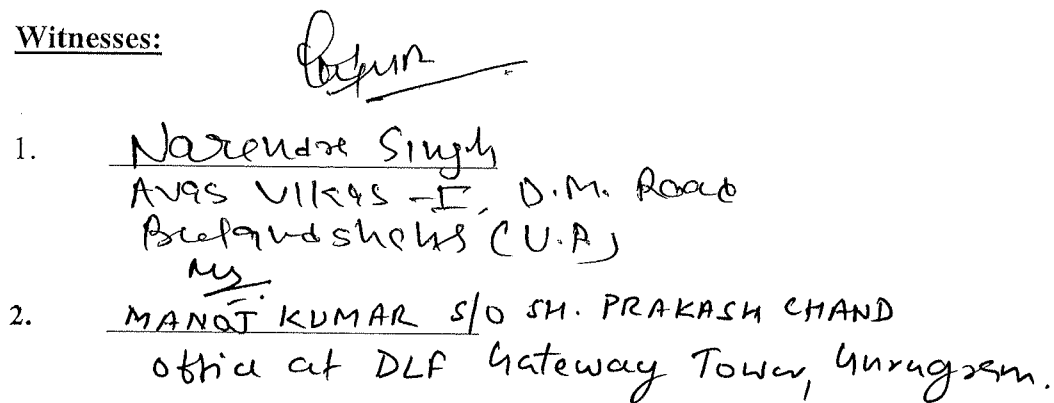 Witnesses:
1. Narendra Singh
Avas Vikas-I, D.M. Road
Bulandshahr (U.P)
2. MANOJ KUMAR S/O SH. PRAKASH CHAND
office at DLF Gateway Tower, Gurugram.